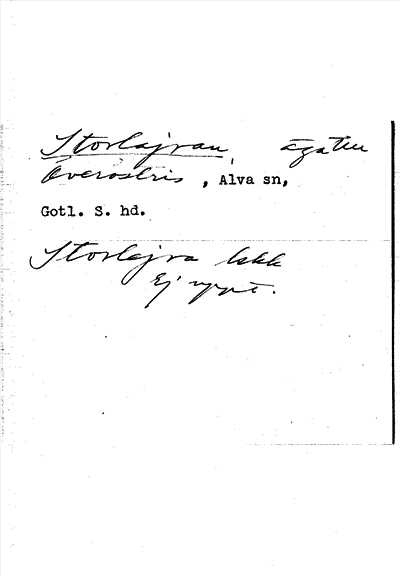 Storlajvan, äga till
Överöstris, Alva sn,
Gotl. S. hd.
Storlajva lskk
Ej uppt.